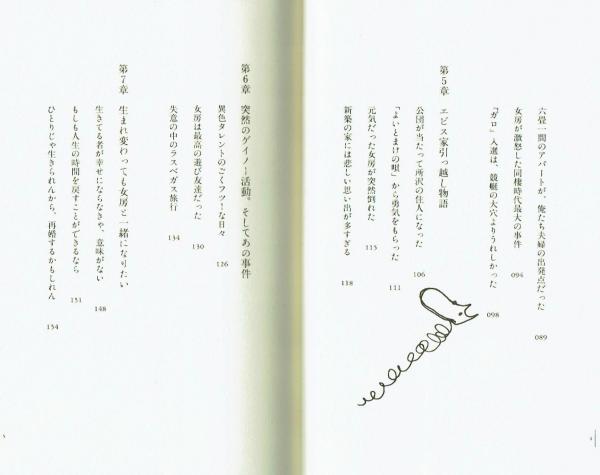 六畳一間のアパートが、俺たち夫婦の出発点だった 089
女房が激怒した同棲時代最大の事件 094
『ガロ』入選は、競艇の大穴よりうれしかった 098
第5章 エビス家引っ越し物語
公団が当たって所沢の住人になった 106
「よいとまけの唄」から勇気をもらった 111
元気だった女房が突然倒れた 115
新築の家には悲しい思い出が多すぎる 118
第6章 突然のゲイノー活動。そしてあの事件
異色タレントのごくフツーな日々 126
女房は最高の遊び友達だった 130
失意の中のラスベガス旅行 134
第7章 生まれ変わっても女房と一緒になりたい
生きてる者が幸せにならなきゃ、意味がない 148
もしも人生の時間を戻すことができるなら 151
ひとりじゃ生きられんから、再婚するかもしれん 154
5